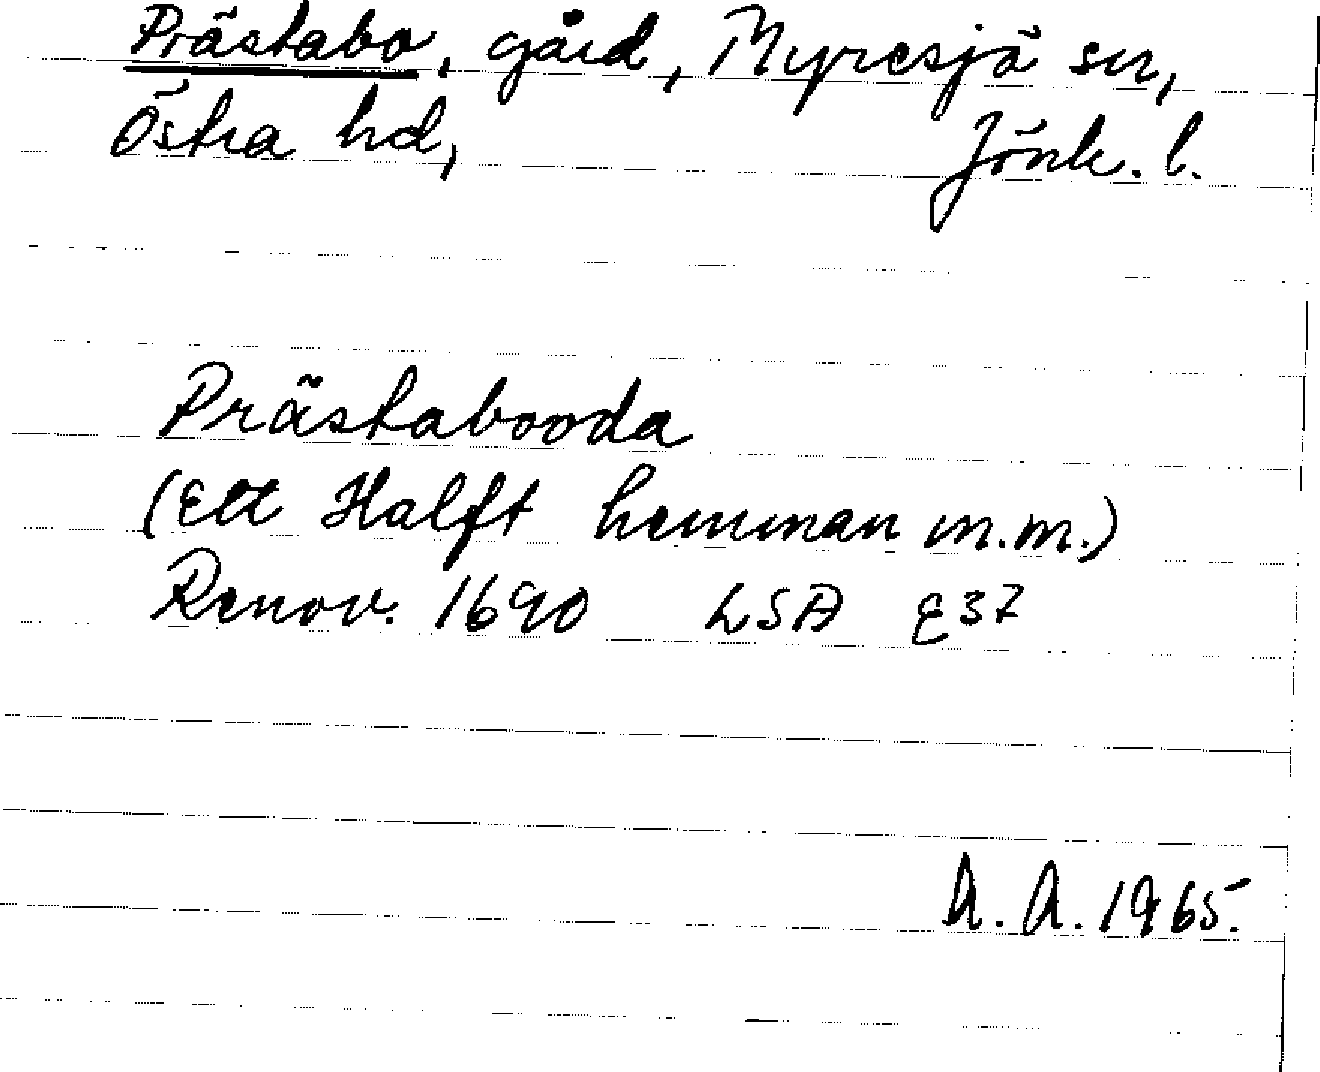 Prästabo, gård, Myresjö sn,
Östra hd, Jönk. l.
Prästabooda
(Ett Halft hemman m.m.)
Renov. 1690 LSA E37
A. A. 1965.